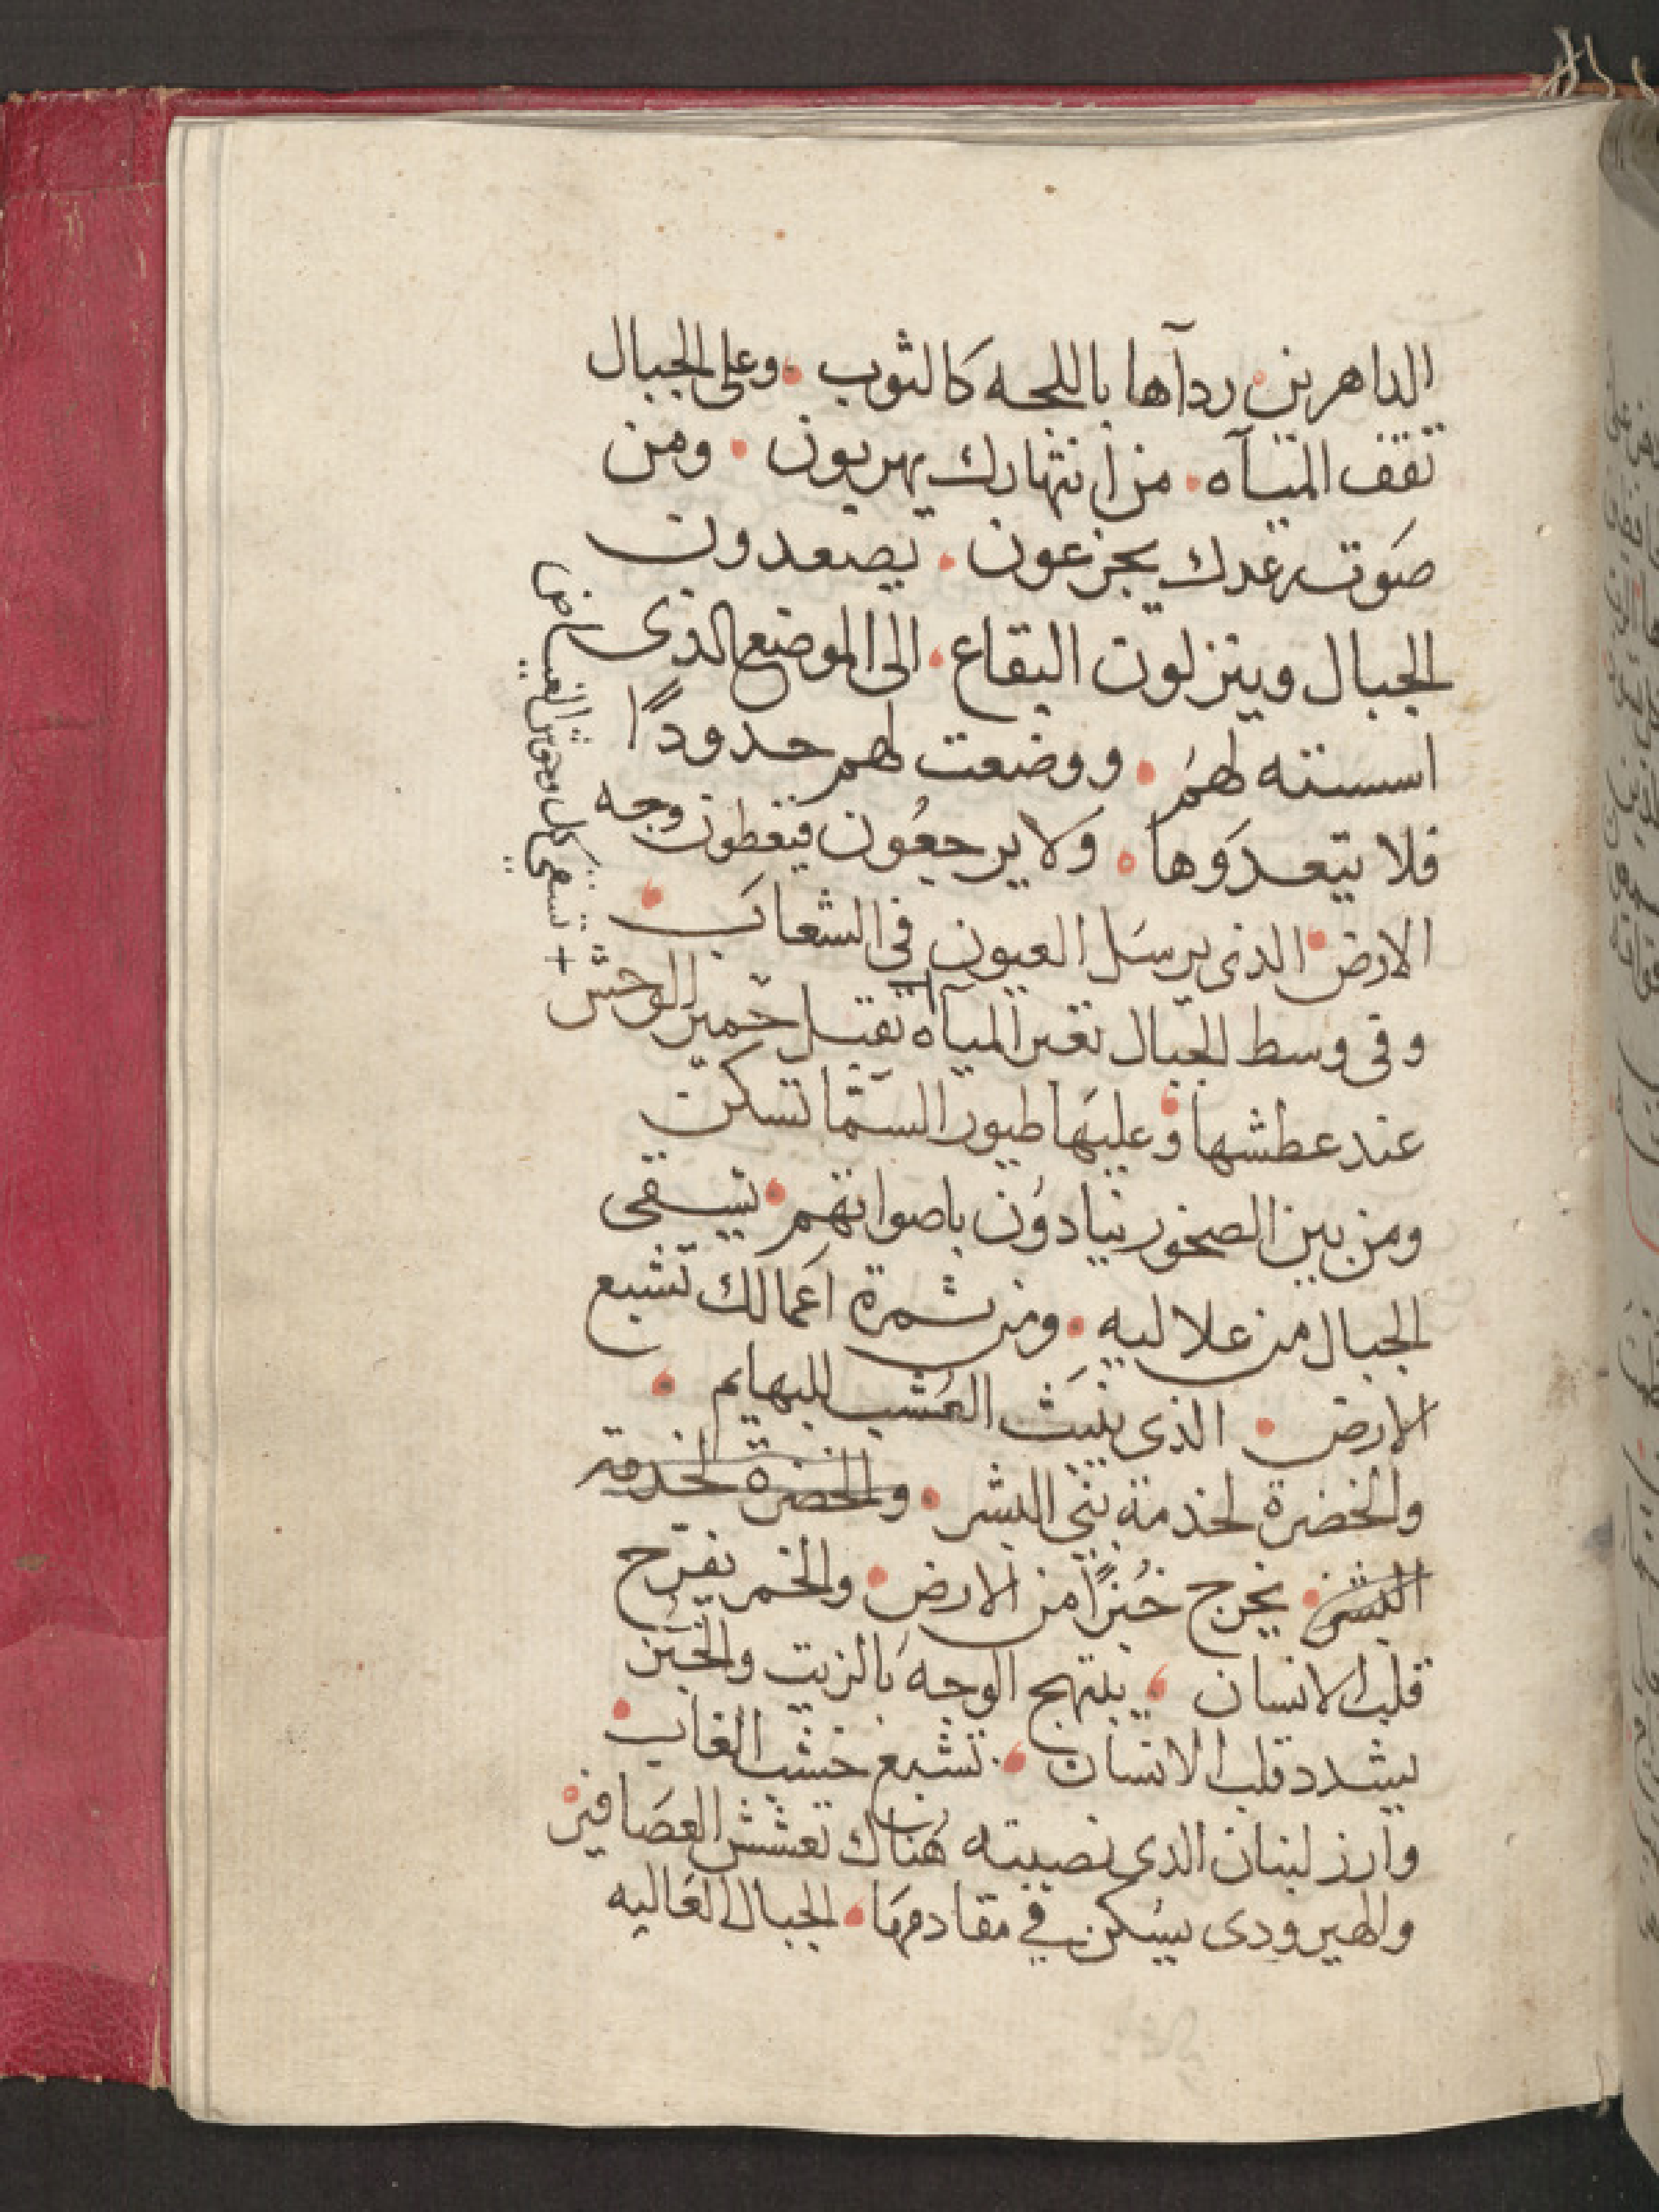 الداهرين رداآها باللجه كالثوب وعلى الجبال
تقف المياه من انتهارك يهربون ومن
صوت رعدك يجزعون يصعدون
الجبال وينزلون البقاع الى الموضع الذى
اسسته لهم ووضعت لهم حدودًا
فلا يتعدوها ولا يرجعون فيغطون وجه
الارض الذى يرسل العيون فى الشعاب
وفى وسط الجبال تعبر المياه تقبل حمير الوحش
عند عطشها وعليها طيور السما تسكن
ومن بين الصخور ينادون باصواتهم يسقى
الجبال من علاليه ومن ثمرة اعمالك تشبع
الارض الذى ينبت العشب للبهايم
والخضرة لخدمة بنى البشر والخضرة لخدمة
البشر يخرج خبزًا من الارض والخمر يفرح
قلب الانسان يبتهج الوجه بالزيت والخبز
يشدد قلب الانسان تشبع خشب الغاب
وارز لبنان الذى نصبته هناك تعشش العصافير
والهيرودى يسكن فى مقادمها الجبال العاليه
+ تسقى كل وحوش الغياض